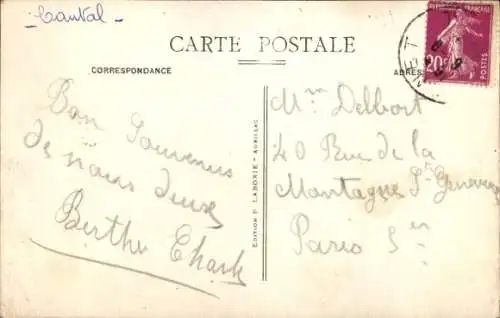 Cantal
CARTE POSTALE
CORRESPONDANCE
ADRES
RÉPUBLIQUE FRANÇAISE
20c
POSTES
Bon Souvenirs
de nous deux
Berthe
EDITION P. LABORIE - AURILLAC
Mr Delbort
40 Rue de la
Montagne Ste Genevieve
Paris 5er